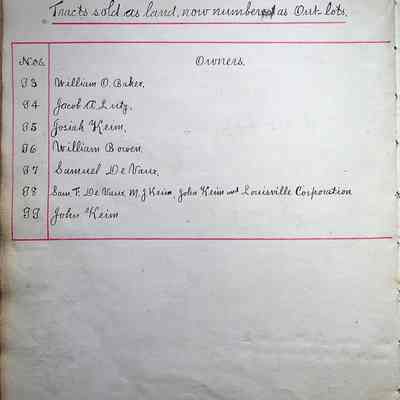 Tracts sold as land, now numbered as Out-lots.
Nos. Owners.
93 William O. Baker.
94 Jacob A Lutz.
95 Josiah Keim.
96 William Bowen.
97 Samuel De Vaux.
98 Sam T. De Vaux, M. J Keim, John Keim and Louisville Corporation
99 John Keim